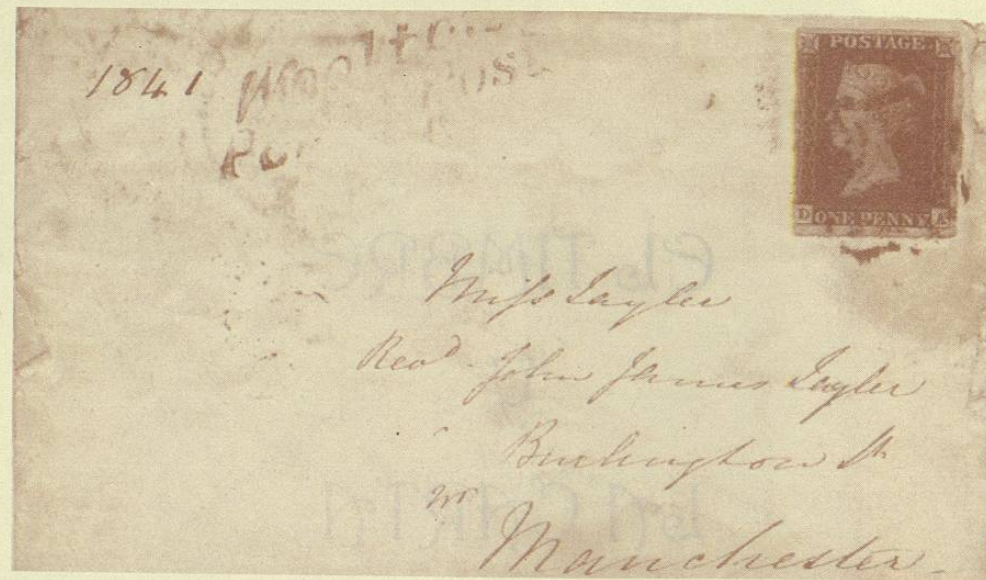 1841
POSTAGE
D ONE PENNY A
Miss Tayler
Revd. John James Tayler
Burlington St
Manchester.